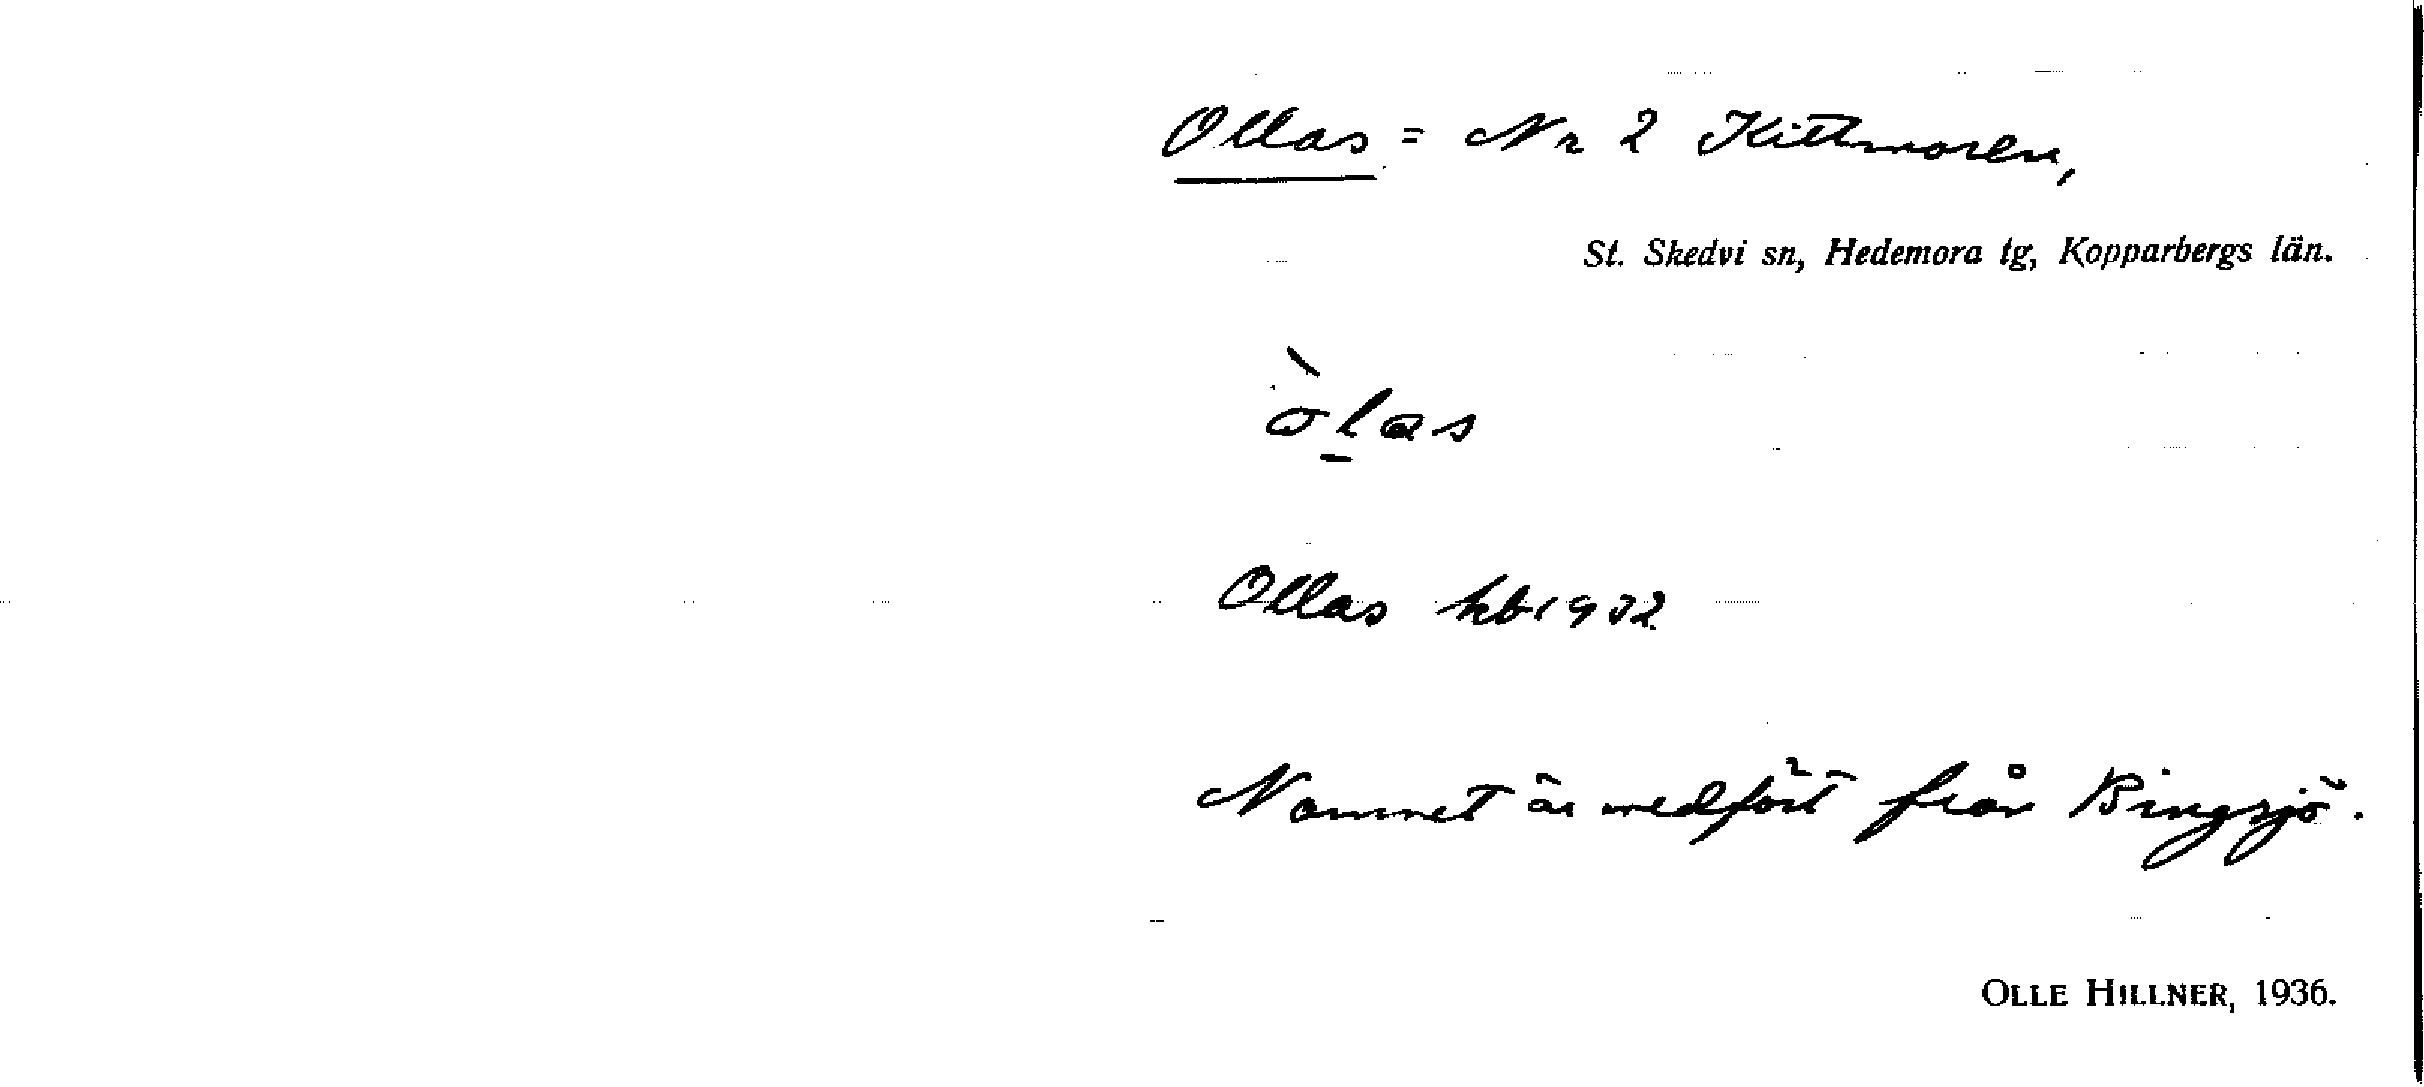 Ollas = Nr 2 Kittmoren,
St. Skedvi sn, Hedemora tg, Kopparbergs län.
òlas
Ollas kb 1932
Namnet är medfört från Bingsjö.
OLLE HILLNER, 1936.